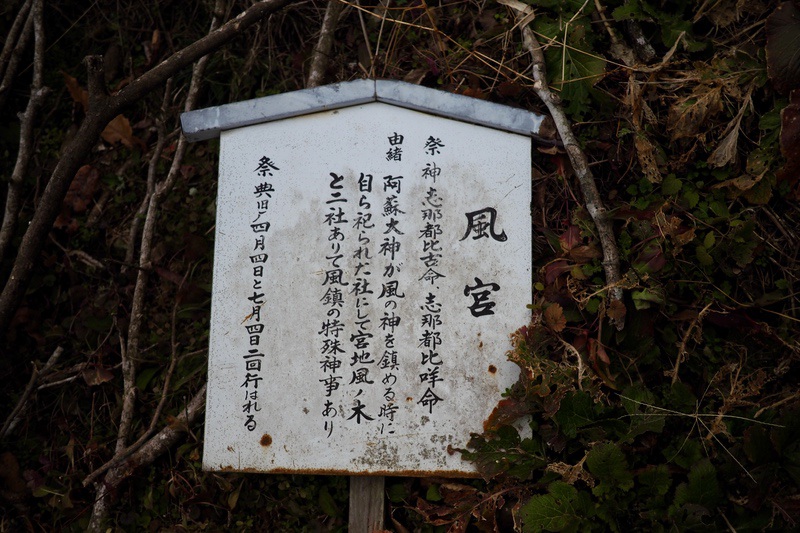 風宮
祭神 志那都比古命、志那都比咩命
由緒 阿蘇大神が風の神を鎮める時に
自ら祀られた社にして宮地風ノ木
と二社ありて風鎮の特殊神事あり
祭典 旧ノ四月四日と七月四日二回行はれる